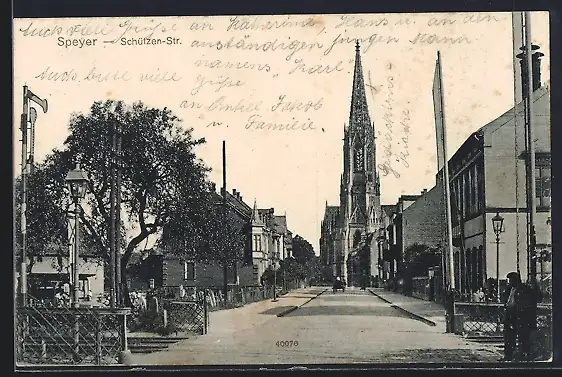 auch viele Grüße an Katherine, Hans u. an den
Speyer — Schützen-Str.
anständigen jungen Mann
namens, Karl
Auch beste viele
grüße
an Onkel Jakob
u. Familie
40076